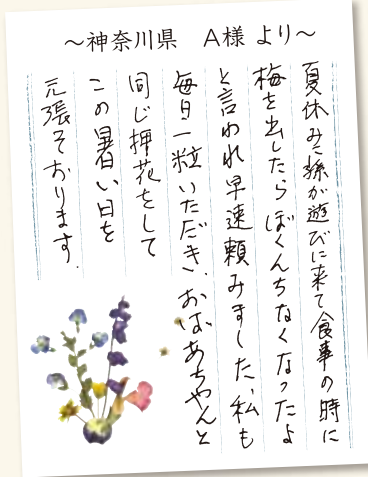 ～神奈川県　A様 より～
夏休みに孫が遊びに来て食事の時に
梅を出したらぼくんちなくなったよ
と言われ早速頼みました、私も
毎日一粒いただき、おばあちゃんと
同じ押花をして
この暑い日を
元張っております.